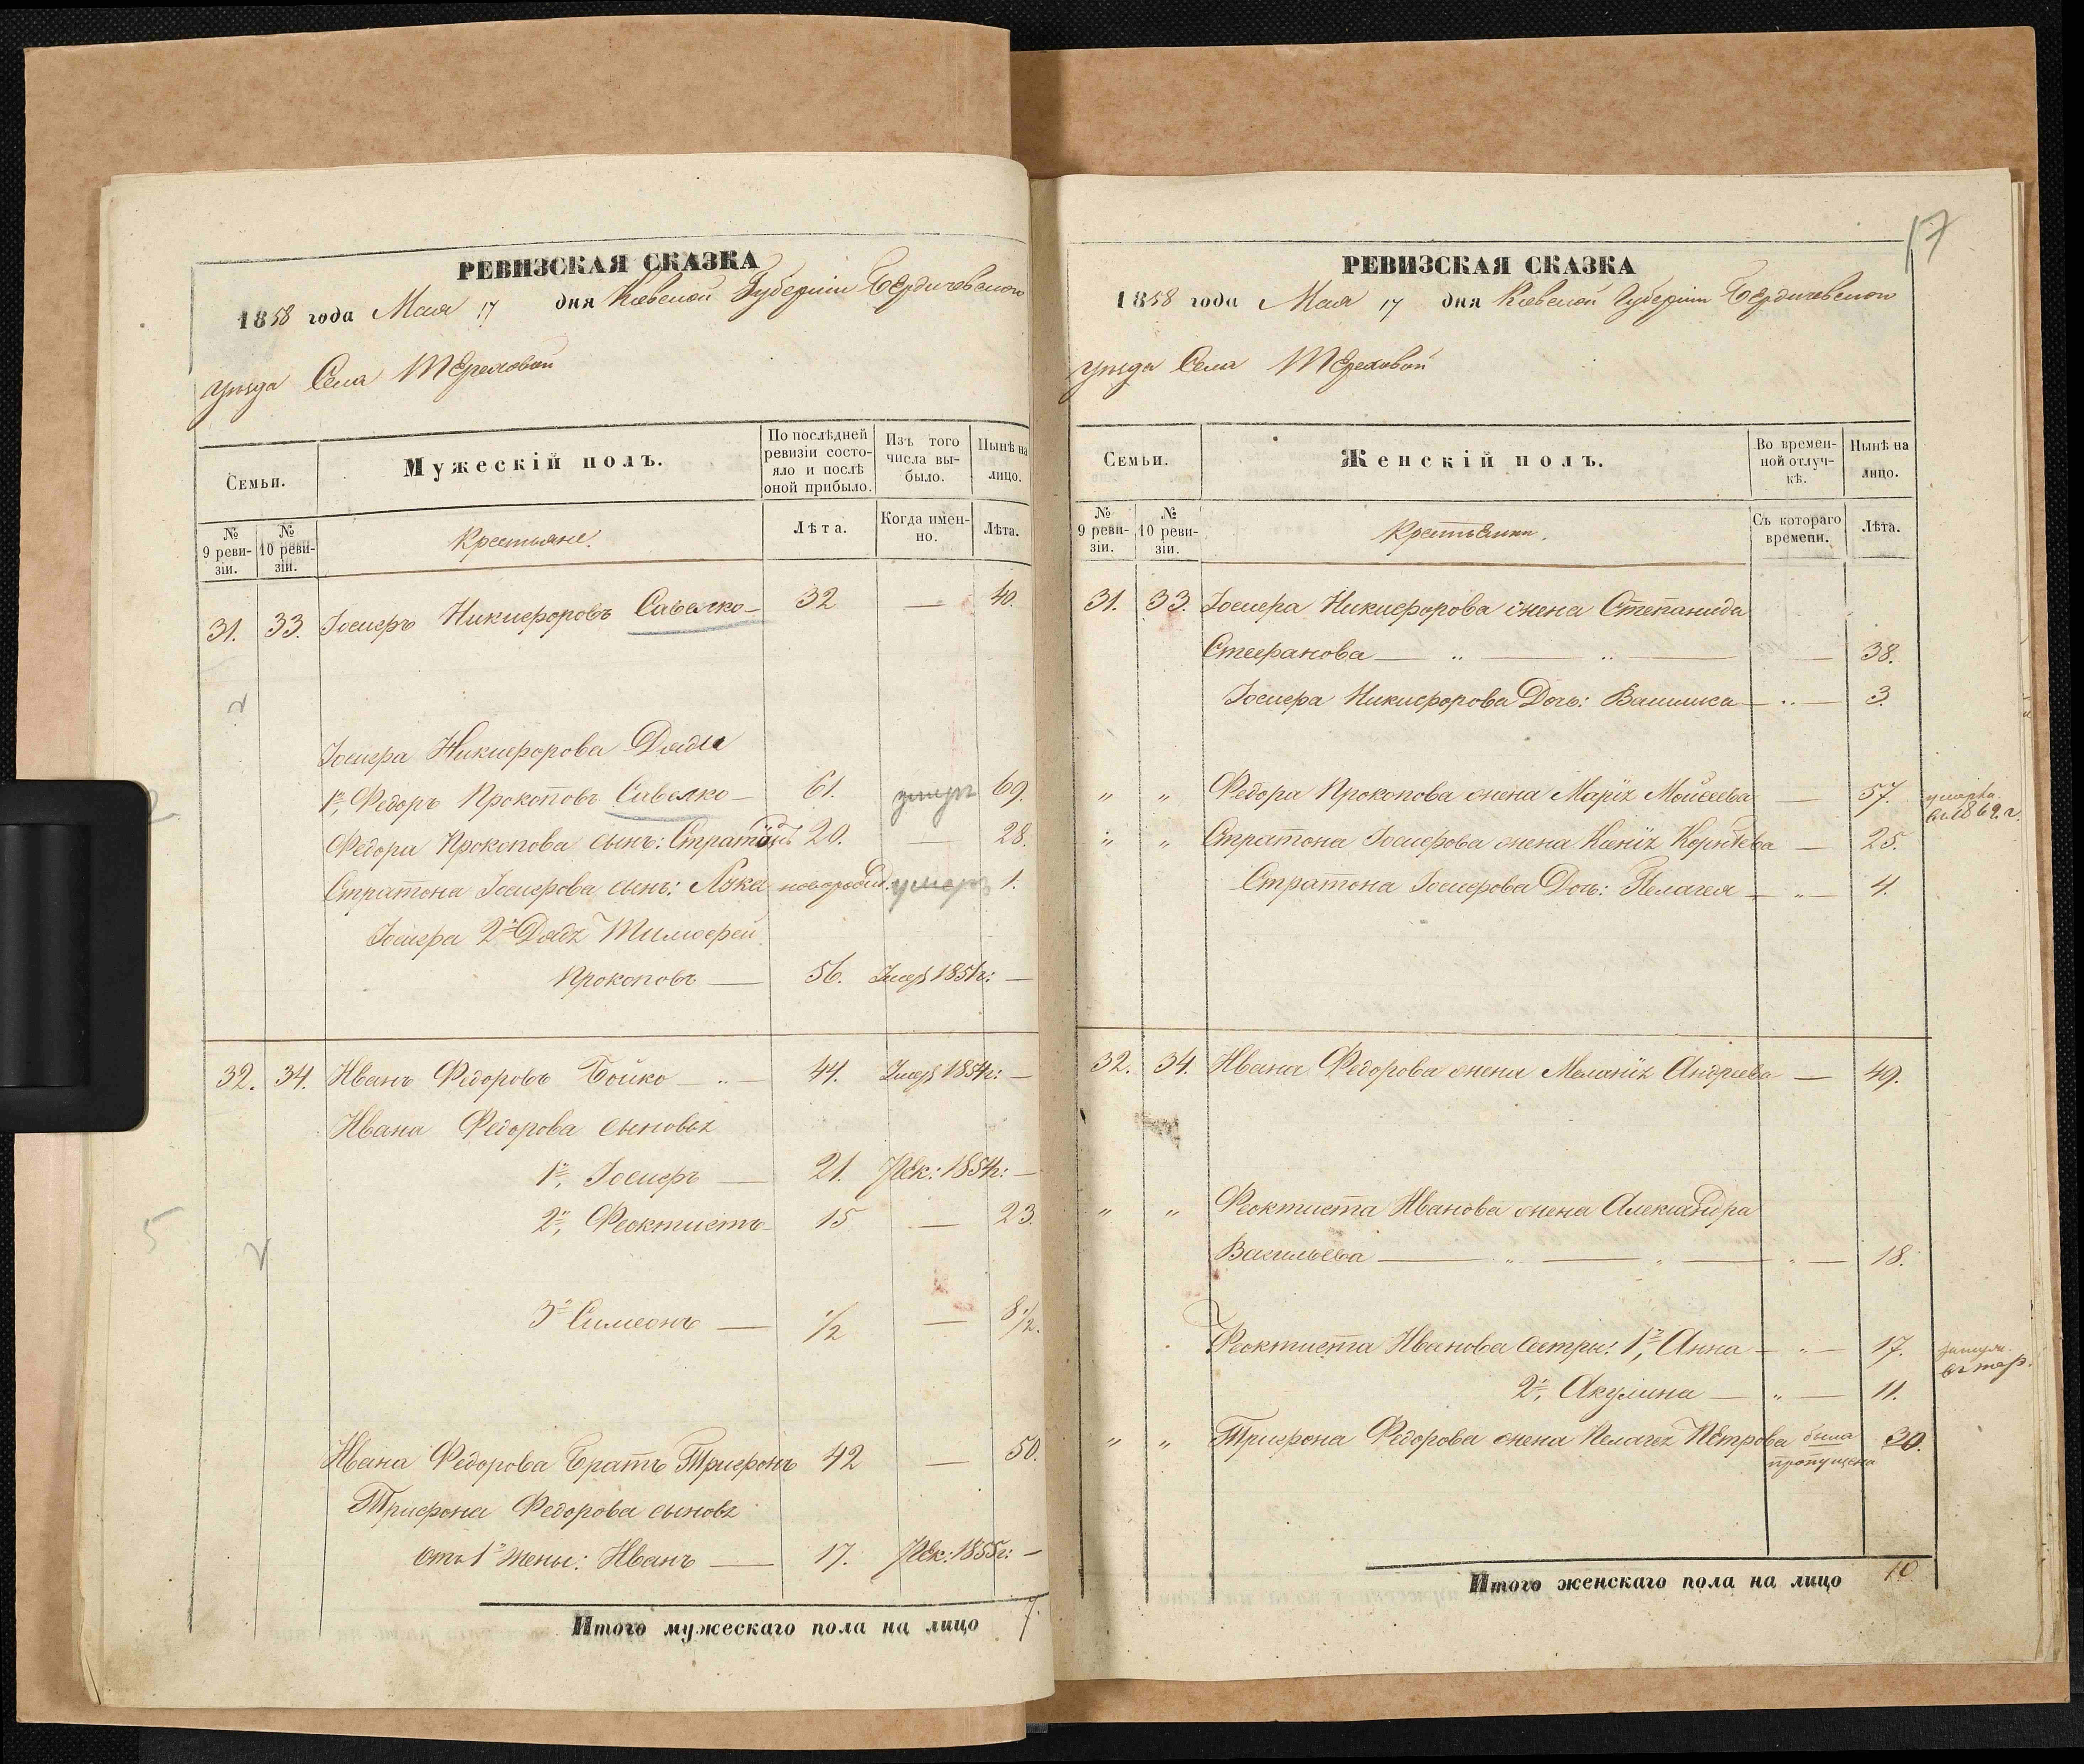 РЕВИЗСКАЯ СКАЗКА
1858 года Мая 17 дня Киевской Губерніи Бердичевскаго
уѣзда Села Тереховой
Семьи.
Мужескій полъ.
По послѣдней ревизіи состояло и послѣ оной прибыло.
Изъ того числа выбыло.
Нынѣ на лицо.
№ 9 ревизіи.
№ 10 ревизіи.
Крестьяне.
Лѣта.
Когда именно.
Лѣта.
31. 33. Іосифъ Никифоровъ Савелко — 32 — 40.
2
Іосифа Никифорова Дяди
1й, Федоръ Прокоповъ Савелко — 61. умеръ 69.
Федора Прокопова сынъ: Стратонъ 20. — 28.
Стратона Іосифова сынъ: Лука новорожд. умеръ 1.
Іосифа 2й Дядя Тимофей
Прокоповъ — 56. Умеръ 1851г: —
32. 34. Иванъ Федоровъ Бойко — „ — 44. Умеръ 1854г: —
Ивана Федорова сыновья
1й, Іосифъ — 21. Рек: 1854г: —
2й, Феоктистъ — 15 — 23.
5
2
3й Симеонъ — 1/2 — 8 1/2.
Ивана Федорова Братъ Трифонъ 42 — 50.
Трифона Федорова сыновья
отъ 1й жены: Иванъ — 17. Рек: 1855г: —
Итого мужескаго пола на лицо 7.
17
РЕВИЗСКАЯ СКАЗКА
1858 года Мая 17 дня Киевской Губерніи Бердичевскаго
уѣзда Села Тереховой
Семьи.
Женскій полъ.
Во временной отлучкѣ.
Нынѣ на лицо.
№ 9 ревизіи.
№ 10 ревизіи.
Крестьянки.
Съ котораго времени.
Лѣта.
31. 33. Іосифа Никифорова жена Степанида
Стефанова — „ — „ — — 38.
Іосифа Никифорова Дочь: Василиса — „ — 3.
„ „ Федора Прокопова жена Марія Мойсеева — 57. умерла
въ 1869. г.
„ „ Стратона Іосифова жена Ксенія Корнѣева — 25.
Стратона Іосифова Дочь: Пелагея — „ — 4.
32. 34. Ивана Федорова жена Меланія Андреева — 49.
„ „ Феоктиста Иванова жена Александра
Васильева — „ — „ — „ — 18.
Феоктиста Иванова сестры: 1я, Анна — „ — 17. замуж.
въ тер.
2я, Акулина — „ — 11.
„ „ Трифона Федорова жена Пелагея Петрова была 30.
пропущена
Итого женскаго пола на лицо 10